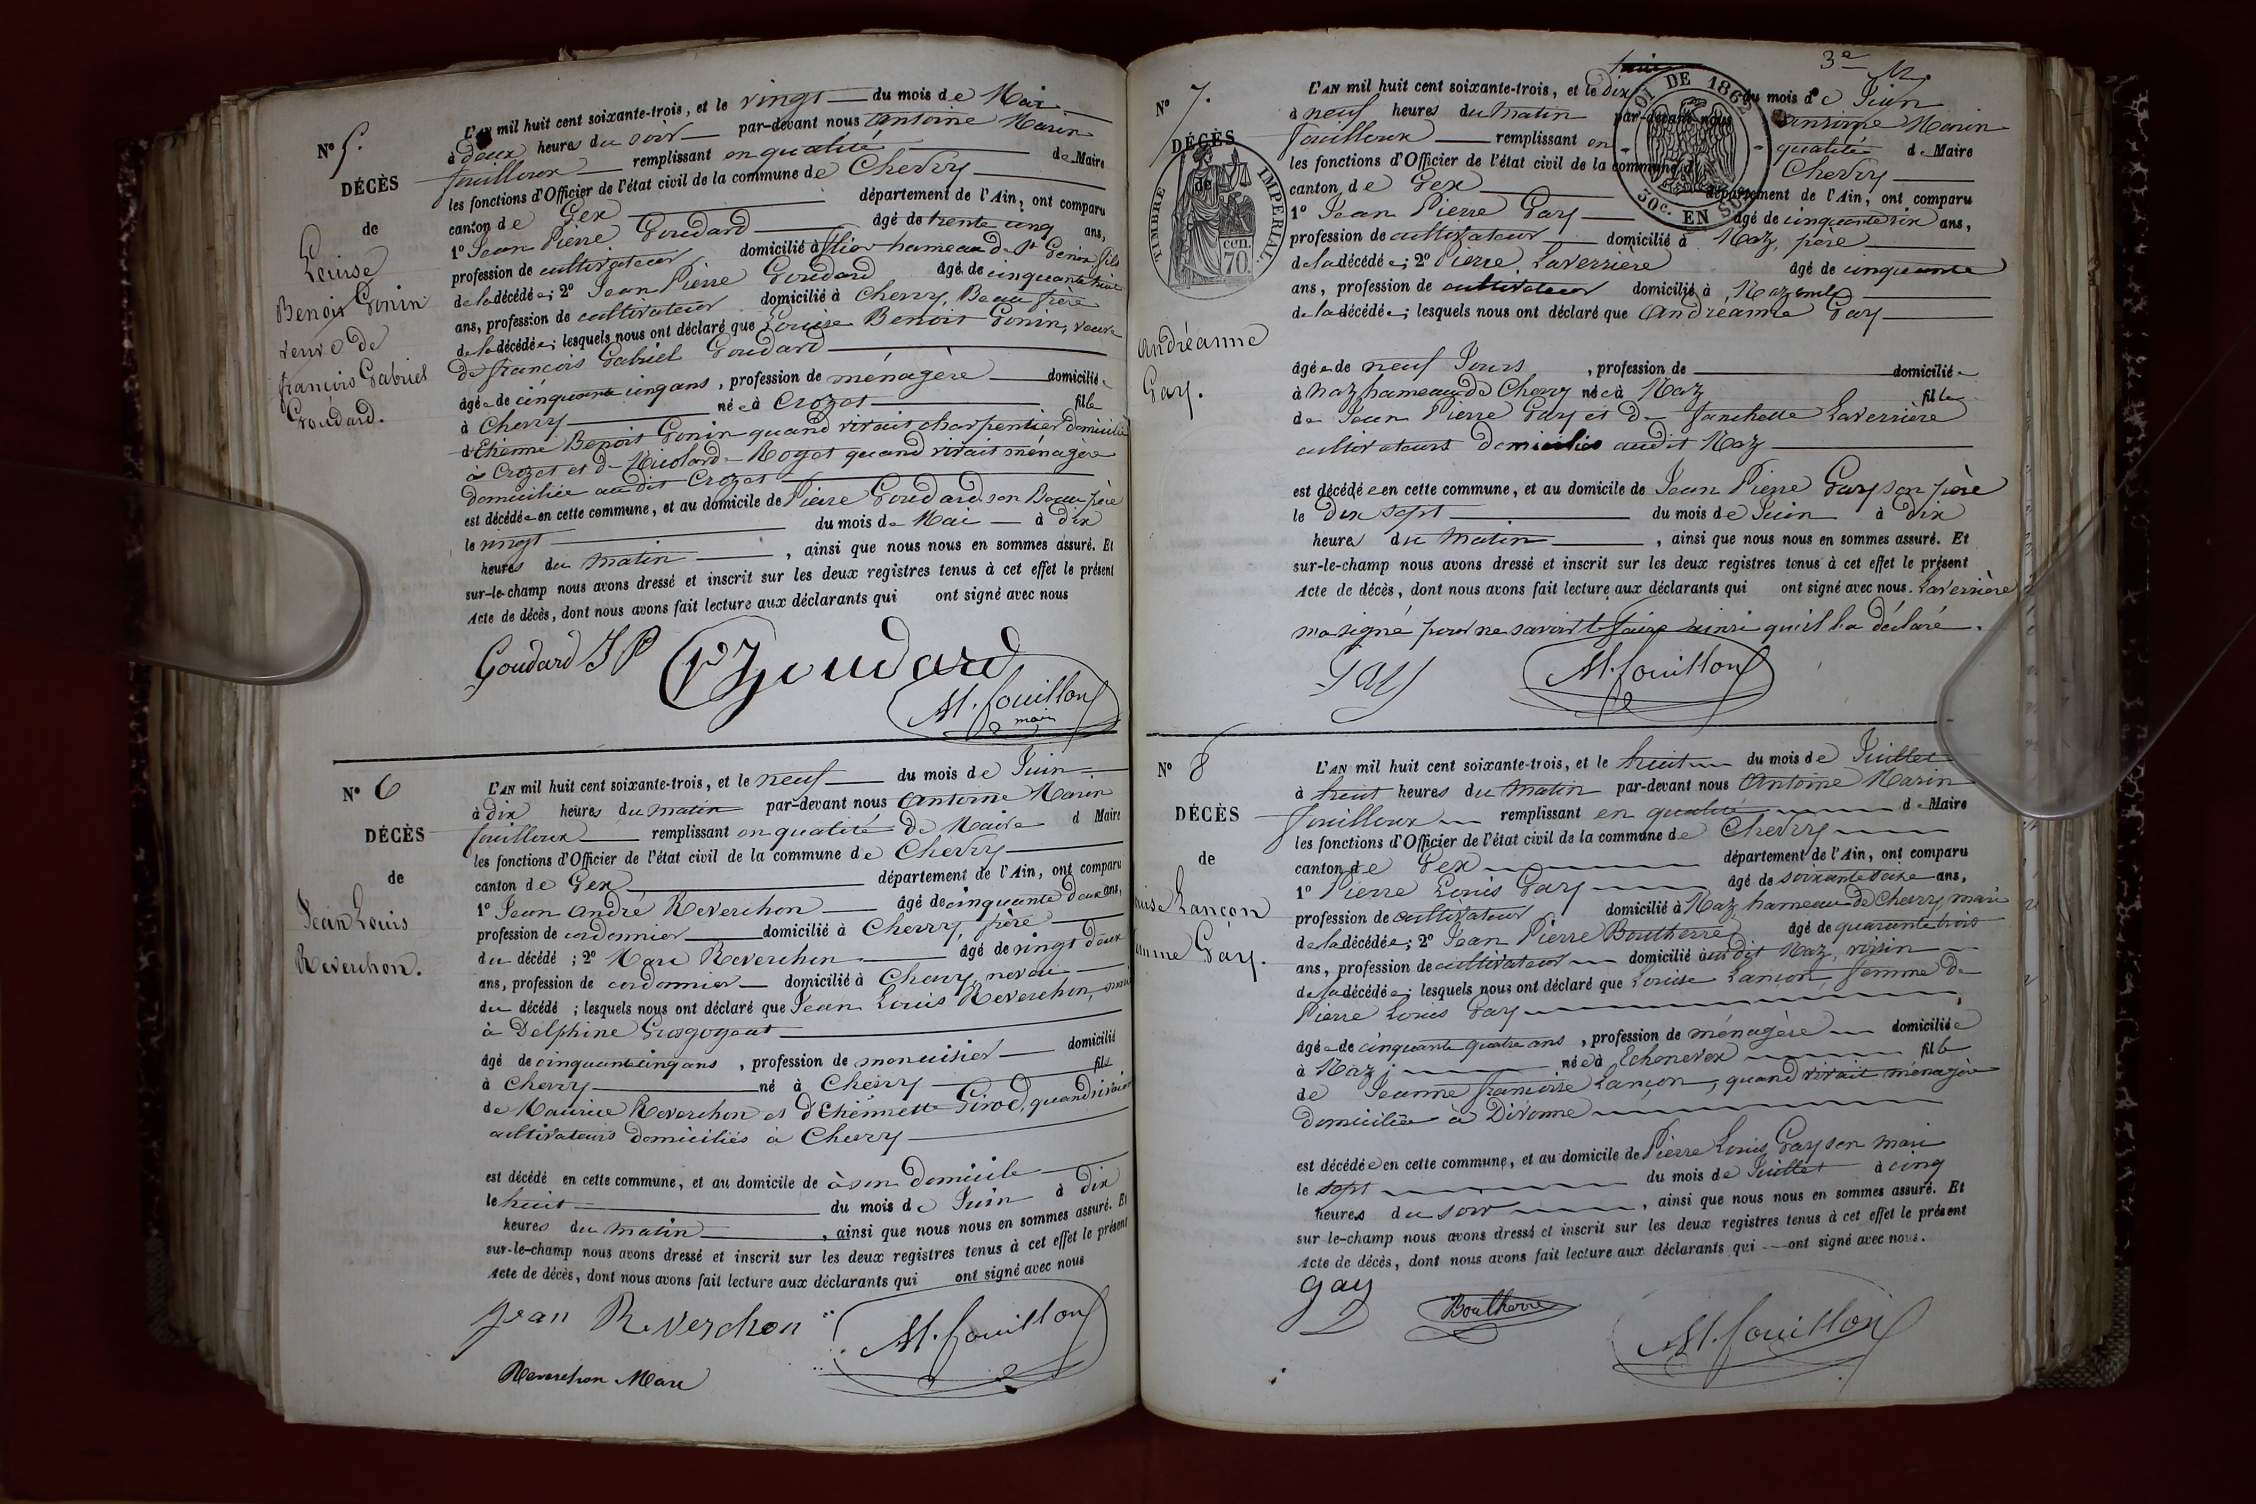 N° 5.
DÉCÈS
de
Louise
Benoit Gonin
veuve de
françois Gabriel
Goudard.
L'AN mil huit cent soixante-trois, et le vingt du mois de Mai
à deux heures du soir par-devant nous Antoine Marin
fouilloux remplissant en qualité de Maire
les fonctions d'Officier de l'état civil de la commune de Chevry
canton de Gex département de l'Ain, ont comparu
1° Jean Pierre Goudard âgé de trente cinq ans,
profession de cultivateur domicilié à flies hameau de St Genix fils
de la décédée; 2° Jean Pierre Goudard âgé de cinquante huit
ans, profession de cultivateur domicilié à Chevry, Beau frère
de la décédée; lesquels nous ont déclaré que Louise Benoit Gonin, veuve
de françois Gabriel Goudard
âgée de cinquante cinq ans, profession de ménagère domiciliée
à Chevry née à Crozet fille
d'Etienne Benoit Gonin quand vivait charpentier domicilié
à Crozet et de Nicolarde Royet quand vivait ménagère
domiciliée au dit Crozet
est décédée en cette commune, et au domicile de Pierre Goudard son Beau père
le vingt du mois de Mai à dix
heures du matin, ainsi que nous nous en sommes assuré. Et
sur-le-champ nous avons dressé et inscrit sur les deux registres tenus à cet effet le présent
Acte de décès, dont nous avons fait lecture aux déclarants qui ont signé avec nous
Goudard J P Goudard
M. fouilloux
maire
N° 6
DÉCÈS
de
Jean Louis
Reverchon.
L'AN mil huit cent soixante-trois, et le neuf du mois de Juin
à dix heures du matin par-devant nous Antoine Marin
fouilloux remplissant en qualité de Maire d Maire
les fonctions d'Officier de l'état civil de la commune de Chevry
canton de Gex département de l'Ain, ont comparu
1° Jean André Reverchon âgé de cinquante deux ans,
profession de cordonnier domicilié à Chevry, frère
du décédé; 2° Marc Reverchon âgé de vingt deux
ans, profession de cordonnier domicilié à Chevry, neveu
du décédé; lesquels nous ont déclaré que Jean Louis Reverchon, mari
à Delphine Grosgogeat
âgé de cinquante cinq ans, profession de menuisier domicilié
à Chevry né à Chevry fils
de Maurice Reverchon et d'Etiennette Girod, quand vivaient
cultivateurs domiciliés à Chevry
est décédé en cette commune, et au domicile de à son domicile
le huit du mois de Juin à dix
heures du matin, ainsi que nous nous en sommes assuré. Et
sur-le-champ nous avons dressé et inscrit sur les deux registres tenus à cet effet le présent
Acte de décès, dont nous avons fait lecture aux déclarants qui ont signé avec nous
Jean Reverchon
M. fouilloux
Reverchon Marc
3e
N° 7.
DÉCÈS
de
TIMBRE IMPERIAL
70 cen.
LOI DE 1862
30c. EN SUS
Andréanne
Gay.
L'AN mil huit cent soixante-trois, et le dix huit du mois de Juin
à neuf heures du matin par-devant nous Antoine Marin
fouilloux remplissant en qualité de Maire
les fonctions d'Officier de l'état civil de la commune de Chevry
canton de Gex département de l'Ain, ont comparu
1° Jean Pierre Gay âgé de cinquante six ans,
profession de cultivateur domicilié à Naz, père
de la décédée; 2° Pierre Laverrière âgé de cinquante
ans, profession de cultivateur domicilié à Naz
de la décédée; lesquels nous ont déclaré que Andréanne Gay
âgée de neuf Jours, profession de domiciliée
à Naz hameau de Chevry née à Naz fille
de Jean Pierre Gay et de fanchette Laverrière
cultivateurs domiciliés audit Naz
est décédée en cette commune, et au domicile de Jean Pierre Gay son père
le dix sept du mois de Juin à dix
heures du matin, ainsi que nous nous en sommes assuré. Et
sur-le-champ nous avons dressé et inscrit sur les deux registres tenus à cet effet le présent
Acte de décès, dont nous avons fait lecture aux déclarants qui ont signé avec nous. Laverrière
n'a signé pour ne savoir le faire ainsi qu'il l'a déclaré.
Gay
M. fouilloux
N° 8
DÉCÈS
de
uise Lançon
mme Gay.
L'AN mil huit cent soixante-trois, et le huit du mois de Juillet
à huit heures du matin par-devant nous Antoine Marin
fouilloux remplissant en qualité de Maire
les fonctions d'Officier de l'état civil de la commune de Chevry
canton de Gex département de l'Ain, ont comparu
1° Pierre Louis Gay âgé de soixante seize ans,
profession de cultivateur domicilié à Naz hameau de Chevry, mari
de la décédée; 2° Jean Pierre Boutherre âgé de quarante trois
ans, profession de cultivateur domicilié audit Naz, voisin
de la décédée; lesquels nous ont déclaré que Louise Lançon, femme de
Pierre Louis Gay
âgée de cinquante quatre ans, profession de ménagère domiciliée
à Naz; née à Echenevex fille
de Jeanne françoise Lançon, quand vivait ménagère
domiciliée à Divonne
est décédée en cette commune, et au domicile de Pierre Louis Gay son mari
le sept du mois de Juillet à cinq
heures du soir, ainsi que nous nous en sommes assuré. Et
sur-le-champ nous avons dressé et inscrit sur les deux registres tenus à cet effet le présent
Acte de décès, dont nous avons fait lecture aux déclarants qui ont signé avec nous.
Gay
Boutherre
M. fouilloux